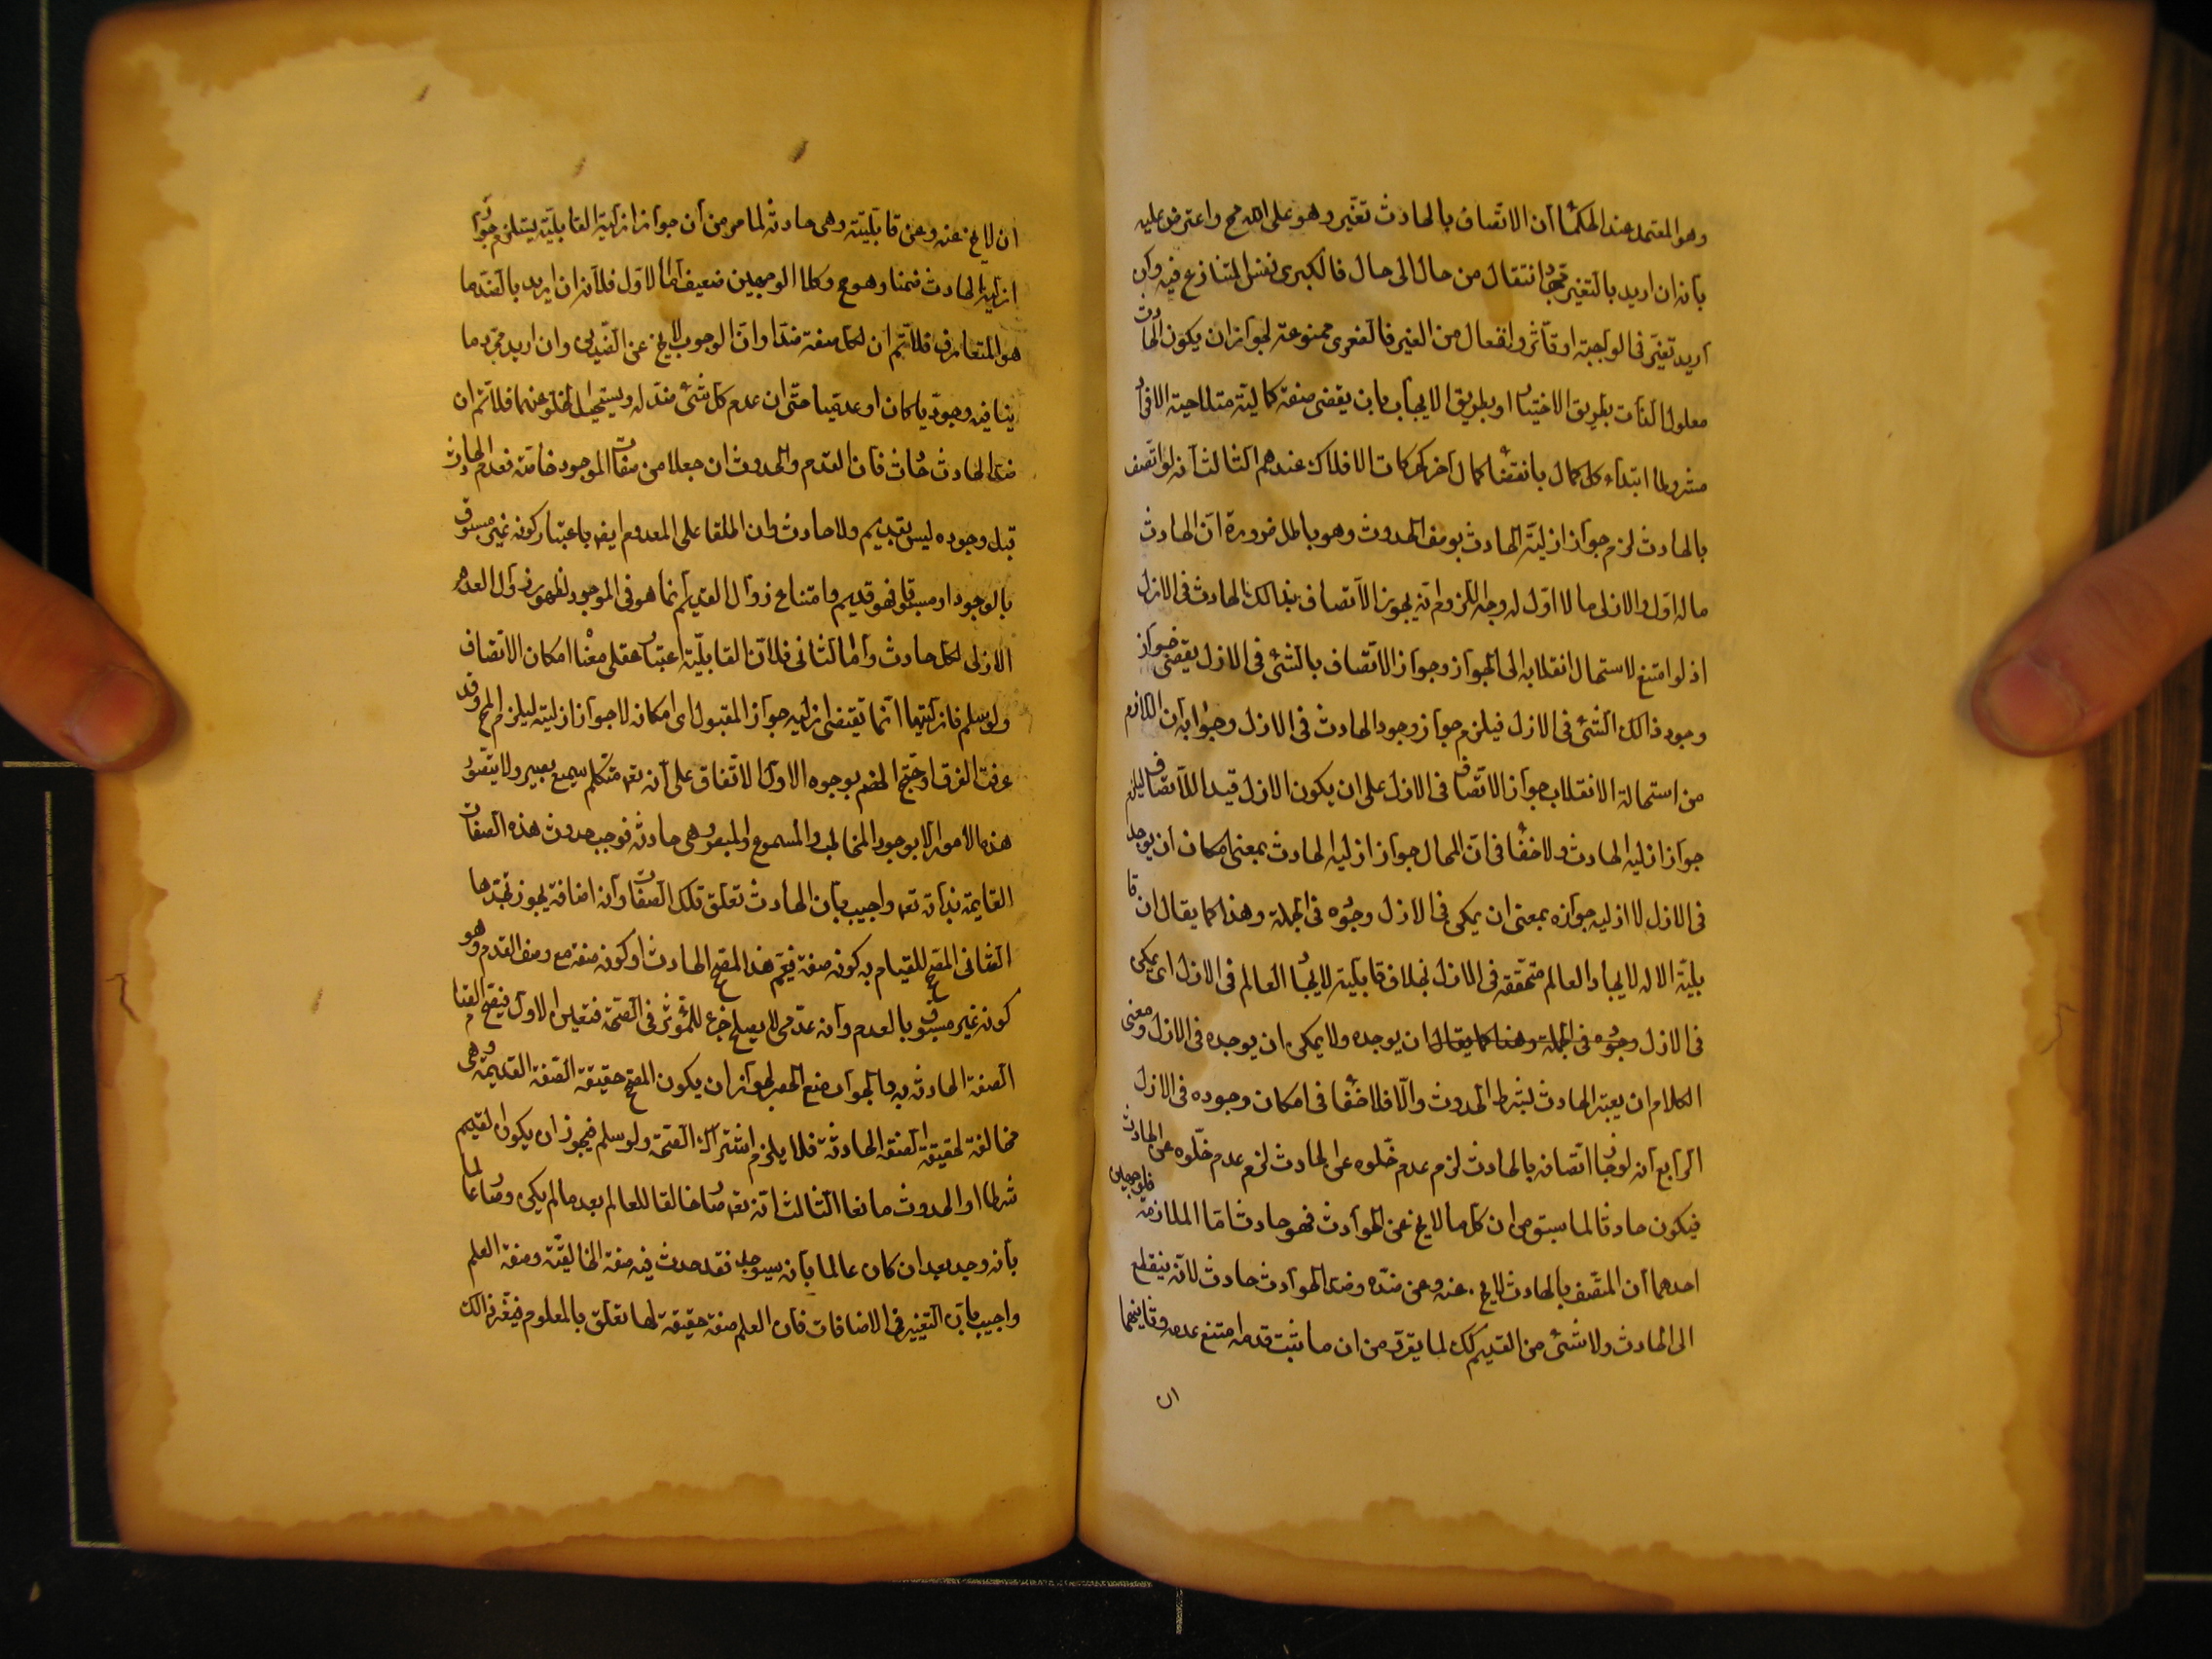 وهو المعتمد عند الحكماء أن الاتصاف بالحادث تغير وهو على الله مح واعترض عليه
بأنه ان اريد بالتغير مجرد انتقال من حال الى حال فالكبرى نفس المتنازع فيه وان
اريد تغير فى الواجبية او تأثر وانفعال من الغير فالصغرى ممنوعة لجواز ان يكون الحادث
معلول الذات بطريق الاختيار او بطريق الايجاب بان يقضى صفة كمالية متلاحقة الافراد
مشروطا ابتداء كل كمال بانقضاء كمال آخر كحركات الافلاك عندهم الثالث أنه لو اتصف
بالحادث لزم جواز ازلية الحادث بوصف الحدوث وهو باطل ضرورة ان الحادث
ماله اول والازلى ما لا اول له وجه اللزوم انه يجوز الاتصاف بذالك الحادث فى الازل
اذ لو امتنع لاستحال انقلابه الى الجواز وجواز الاتصاف بالشئ فى الازل يقضى جواز
وجود ذالك الشئ فى الازل فيلزم جواز وجود الحادث فى الازل وجوابه ان اللازم
من استحالة الانقلاب جواز الاتصاف فى الازل على ان يكون الازل قيدا للاتصاف ليلزم
جواز ازلية الحادث ولا خفاء فى ان المحال جواز ازلية الحادث بمعنى امكان ان يوجد
فى الازل لا ازلية جوازه بمعنى ان يمكن فى الازل وجوده فى الجملة وهذا كما يقال ان قا
بلية الاله لايجاد العالم متحققة فى الازل بخلاف قابليته لايجاد العالم فى الازل اى يمكن
فى الازل وجوده فى الجملة وهذا كما يقال ان يوجده ولا يمكن ان يوجده فى الازل ومعنى
الكلام ان يعتبر الحادث بشرط الحدوث والا فلا خفاء فى امكان وجوده فى الازل
الرابع أنه لو جاز اتصافه بالحادث لزم عدم خلوه عن الحادث لزم عدم خلوه عن الحادث
فيكون حادثا لما سبق من ان كل ما لا يخ عن الحوادث فهو حادث اما الملازمة فلوجهين
احدهما أن المتصف بالحادث لا يخ عنه وعن ضده وضد الحوادث حادث لانه ينقطع
الى الحادث ولا شئ من القديم كك لما يقرر من ان ما ثبت قدمه امتنع عدمه وثانيهما
ان
ان لا يخ عنه وعن قابليته وهى حادثة لما مر من أن جواز ازلية القابلية يستلزم جواز
ازلية الحادث ضمنا وهو مح وكلا الوجهين ضعيف اما الاول فلانه ان اريد بالضد ما
هو المتعارف فلا نم ان لكل صفة ضدا وان الوجوب لا يخ عن الضدين وان اريد مجرد ما
ينافيه وجوديا كان او عدميا حتى ان عدم كل شئ ضد له ويستحيل الخلو عنهما فلا نم ان
ضد الحادث حادث فان القدم والحدوث ان جعلا من صفات الموجود خاصة فعدم الحادث
قبل وجوده ليس بقديم ولا حادث وان اطلقا على المعدوم ايضا باعتبار كونه غير مسبوق
بالوجود او مسبوقا فهو قديم وامتناع زوال القديم انما هو فى الموجود لظهور زوال العدم
الازلى لكل حادث واما الثانى فلان القابلية اعتبار عقلى معناه امكان الاتصاف
ولو سلم فازليتها انما تقتضى ازلية جواز المقبول اى امكانه لا جواز ازليته ليلزم المح وقد
عرفت الفرق احتج الخصم بوجوه الاول الاتفاق على أنه تعه متكلم سميع بصير ولا يتصور
هذه الأمور الا بوجود المخاطب والمسموع والمبصر وهى حادثة فوجب حدوث هذه الصفات
القايمة بذاته تعه واجيب بان الحادث تعلق تلك الصفات وانه اضافة يجوز تجددها
الثانى المصحح للقيام به كونه صفة فيعم هذا المصحح الحادث او كونه صفة مع وصف القدم وهو
كونه غير مسبوق بالعدم وأنه عدمى لا يصلح جزء للمؤثر فى الصحة فتعين الاول فيصح القيام
الصفة الحادثة به والجواب منع الحصر لجواز ان يكون المصحح حقيقة الصفة القديمة وهى
مخالفة لحقيقة الصفة الحادثة فلا يلزم اشتراك الصحة ولو سلم فيجوز ان يكون القديم
شرطا او الحدوث مانعا الثالث انه تعه صار خالقا للعالم بعد ما لم يكن وصار عالما
بأنه وجد بعد ان كان عالما بأنه سيوجد فقد حدث فيه صفة الخالقية وصفة العلم
واجيب بان التغيير فى الاضافات فان العلم صفة حقيقة لها تعلق بالمعلوم فيتغير ذالك